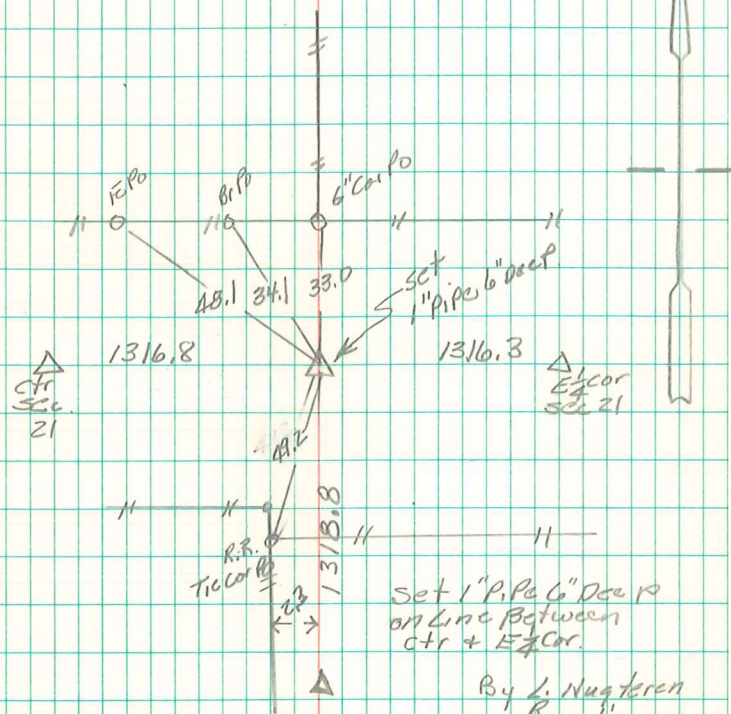 Fc Po
Br Po
6" Cor Po
48.1
34.1
33.0
Set
1" Pipe 6" Deep
1316.8
1316.3
Ctr
Sec.
21
E¼Cor
Sec 21
49.2
1318.8
R.R.
Tie Cor Po
23
Set 1" Pipe 6" Deep
on Line Between
Ctr & E¼Cor.
By L. Nugteren